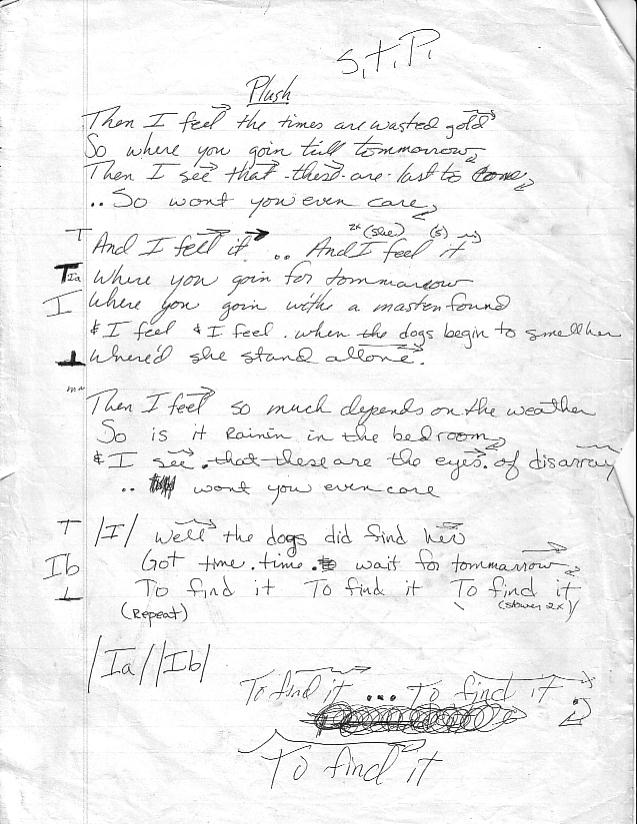 S.T.P.
Plush
Then I feel the times are wasted gold
So where you goin till tommorrow
Then I see that these are last to come
.. So wont you even care
T And I feel it .. And I feel it
2x (she) (s)
Ia Where you goin for tommarrow
I Where you goin with a master found
& I feel & I feel . when the dogs begin to smell her
Where'd she stand allone.
Then I feel so much depends on the weather
So is it Rainin in the bedroom
& I see . that these are the eyes . of disarray
.. wont you even care
|I| well the dogs did find her
Ib Got time . time . wait for tommarrow
To find it To find it To find it
(Repeat) (slower 2x)
|Ia| |Ib|
To find it ... To find it
To find it